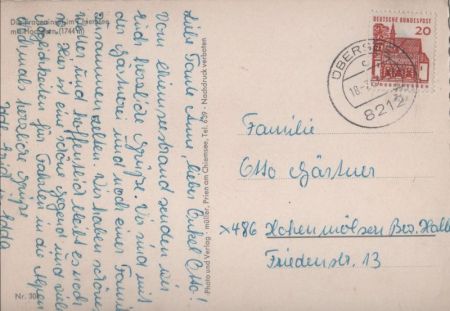 Fraueninsel im Chiemsee
mit Hochfelln (1744 m)
Liebe Tante Anna, lieber Onkel Otto!
Vom Chiemseestrand senden wir
Euch herzliche Grüße. Wir sind mit
der Gärtnerei und noch einer Familie
zusammen zelten. Wir haben schönes
Wetter und hoffentlich bleibt es noch
so. Hier ist eine schöne Gegend und viele
Möglichkeiten für Fahrten in die Alpen
Nochmals herzliche Grüße
Nr. 30
Photo und Verlag - müller, Prien am Chiemsee, Tel. 639 - Nachdruck verboten
DEUTSCHE BUNDESPOST
20
8212
Familie
Otto Gärtner
x486 Hohenmölsen Bez. Halle
Friedenstr. 13